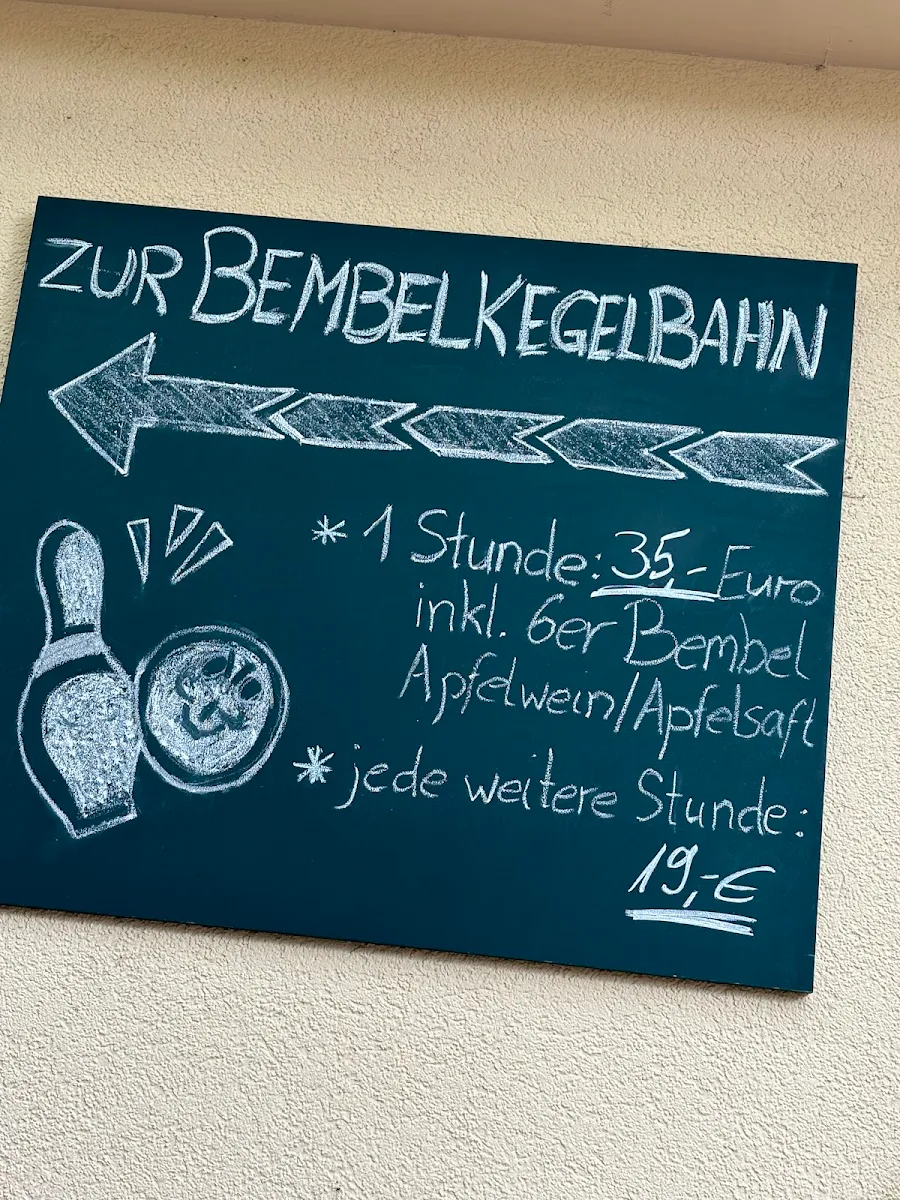 ZUR BEMBELKEGELBAHN
* 1 Stunde: 35,- Euro
inkl. 6er Bembel
Apfelwein/Apfelsaft
* jede weitere Stunde:
19,-€